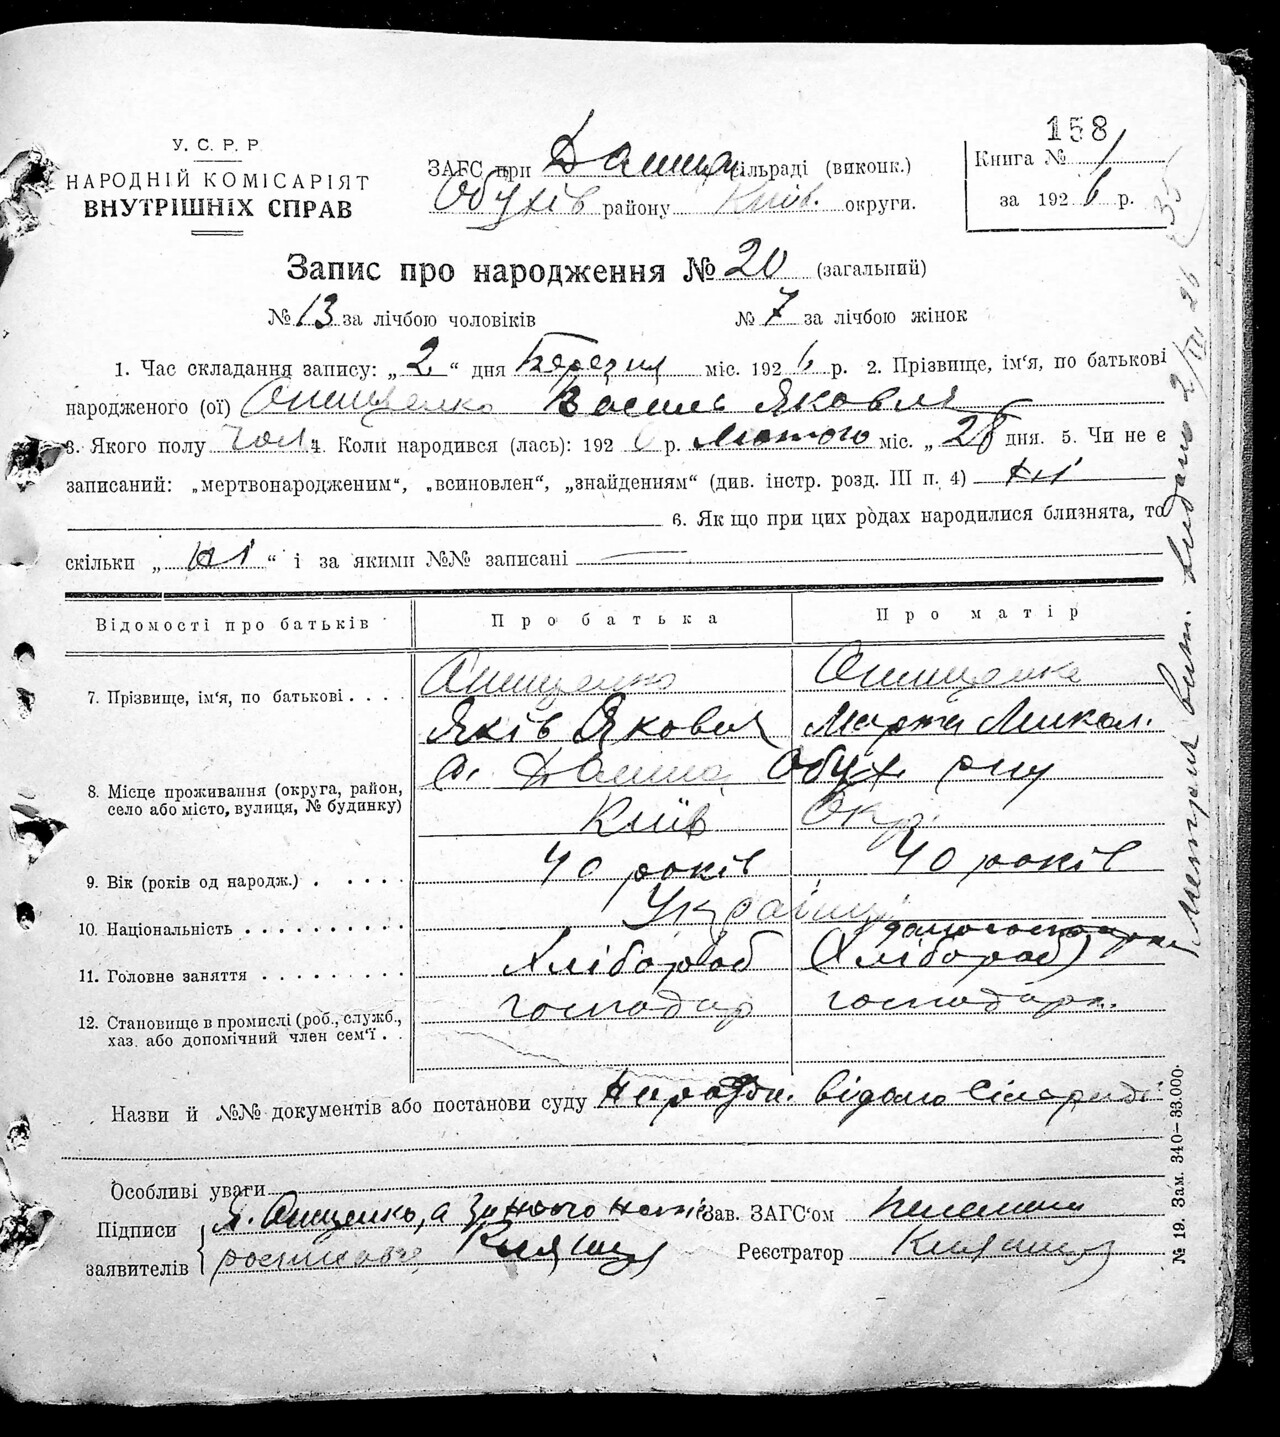 158
У. С. Р. Р.
НАРОДНІЙ КОМІСАРІЯТ
ВНУТРІШНІХ СПРАВ
ЗАГС при сільраді (виконк.)
Обухів району Київ. округи.
Книга № 1
за 1926 р.
Запис про народження № 20 (загальний)
№ 13 за лічбою чоловіків № 7 за лічбою жінок
1. Час складання запису: „ 2 “ дня Березня міс. 1926 р. 2. Прізвище, ім‘я, по батькові
народженого (ої) Онищенко Василь Яковля
3. Якого полу чол 4. Коли народився (лась): 1926 р. Лютого міс. „ 28 дня. 5. Чи не є
записаний: „мертвонародженим“, „всиновлен“, „знайденням“ (див. інстр. розд. III п. 4) ні
6. Як що при цих родах народилися близнята, то
скільки „ ні “ і за якими №№ записані
Відомості про батьків Про батька Про матір
Онищенко Онищенко
7. Прізвище, ім‘я, по батькові . . . .
Яків Яковля Марта Микол.
с. Обух. р-ну
8. Місце проживання (округа, район,
село або місто, вулиця, № будинку)
Київ Окр.
9. Вік (років од народж.) . . . . . 40 років 40 років
10. Національність . . . . . . . . . . Українці
11. Головне заняття . . . . . . . . . Хлібороб (Хлібороб)
12. Становище в промислі (роб., служб.,
хаз. або допомічний член сем‘ї . . господар господарк.
Назви й №№ документів або постанови суду відомо Сільраді
Особливі уваги
Підписи
заявителів
Я. Онищенко, а за нього
Зав. ЗАГС‘ом
Реєстратор
№ 19. Зам. 340–33.000.
Метрич. вит. видано 2/III 26